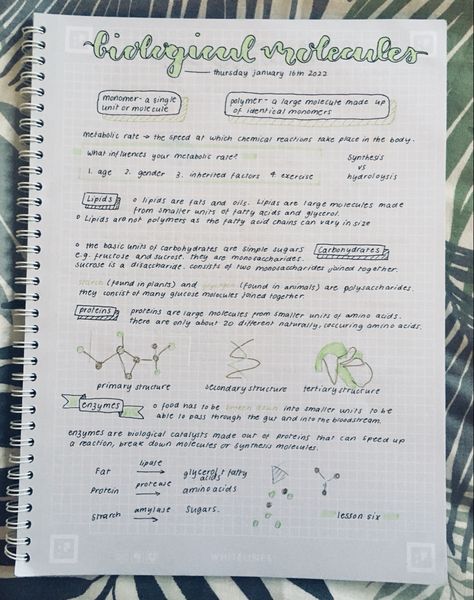 biological molecules
thursday january 16th 2022
monomer - a single
unit or molecule
polymer - a large molecule made up
of identical monomers
metabolic rate → the speed at which chemical reactions take place in the body.
what influences your metabolic rate?
1. age 2. gender 3. inherited factors 4. exercise
synthesis
vs
hydroloysis
Lipids
o lipids are fats and oils. Lipids are large molecules made
from smaller units of fatty acids and glycerol.
o Lipids are not polymers as the fatty acid chains can vary in size
o the basic units of carbohydrates are simple sugars
Carbohydrates
e.g. fructose and sucrose. they are monosaccharides.
sucrose is a disaccharide. consists of two monosaccharides joined together.
starch (found in plants) and glycogen (found in animals) are polysaccharides.
they consist of many glucose molecules joined together.
proteins
proteins are large molecules from smaller units of amino acids.
there are only about 20 different naturally, occuring amino acids.
primary structure
secondary structure
tertiary structure
enzymes
o food has to be broken down into smaller units to be
able to pass through the gut and into the bloodstream.
enzymes are biological catalysts made out of proteins that can speed up
a reaction, break down molecules or synthesis molecules.
Fat lipase → glycerol + fatty
acids
Protein protease → amino acids
Starch amylase → sugars.
lesson six
WHITELINES